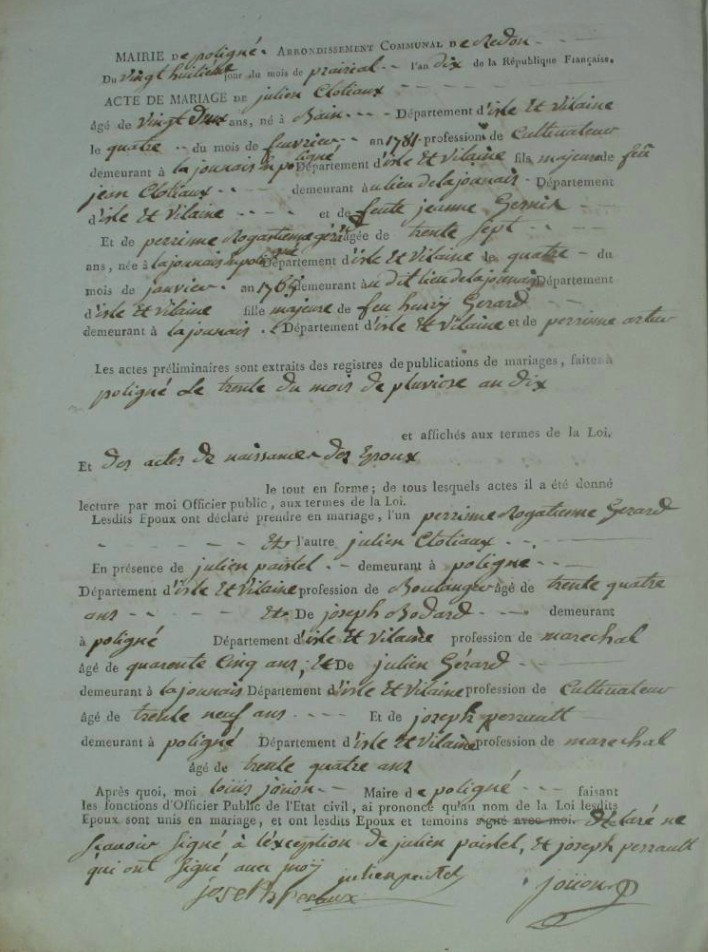 MAIRIE De poligné. ARRONDISSEMENT COMMUNAL De Redon - -
Du Vingt huitième jour du mois de prairial - - l'an dix de la République Française.
ACTE DE MARIAGE DE julien Clotiaux - - - - -
âgé de Vingt Deux ans, né à Bain - - - Département d'isle Et Vilaine
le quatre - - du mois de feuvrier - - an 1781 profession de Cultivateur
demeurant à la jounais en poligné Département d'isle Et Vilaine fils majeur de feu
jean Clotiaux - - - demeurant au lieu de la jounais - Département
d'isle Et Vilaine - - - - et de feute jeanne
Et de perrinne Rogatienne gérard âgée de trente Sept - -
ans, née à la jounais en poligné Département d'isle Et Vilaine le quatre - du
mois de janvier - an 1765 demeurant au dit lieu de la jounais Département
d'isle Et vilaine fille majeure de feu henry Gerard - -
demeurant à la jounais - Département d'isle Et Vilaine et de perrinne
Les actes préliminaires sont extraits des registres de publications de mariages, faites à
poligné Le trente du mois de pluviose an dix
et affichés aux termes de la Loi.
Et Des actes de naissance des Epoux
le tout en forme; de tous lesquels actes il a été donné
lecture par moi Officier public, aux termes de la Loi.
Lesdits Epoux ont déclaré prendre en mariage, l'un perrinne Rogatienne Gerard
- - - - - Et l'autre julien Clotiaux - - -
En présence de julien paistel - - demeurant à poligné - - -
Département d'isle Et Vilaine profession de Boulanger âgé de trente quatre
ans - - - - - Et De joseph Bodard - - - demeurant
à poligné Département d'isle Et Vilaine profession de marechal
âgé de quarente Cinq ans, Et De julien Gérard - -
demeurant à la jounais Département d'isle Et Vilaine profession de Cultivateur
âgé de trente neuf ans - - - - Et de joseph perrault
demeurant à poligné Département d'isle Et Vilaine profession de marechal
âgé de trente quatre ans
Après quoi, moi louis joüon - - Maire de poligné - - - faisant
les fonctions d'Officier Public de l'Etat civil, ai prononcé qu'au nom de la Loi lesdits
Epoux sont unis en mariage, et ont lesdits Epoux et temoins signé avec moi. Declaré ne
scavoir signé à L'exception De julien paistel, Et joseph perrault
qui ont signé avec moy julien paistel
joseph peraux joüon